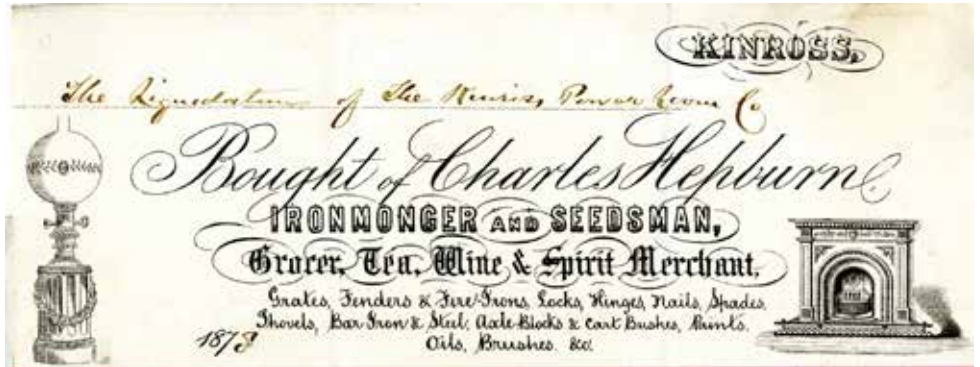 KINROSS,
The Liquidators of The Kinross Power Loom Co
Bought of Charles Hepburn
IRONMONGER AND SEEDSMAN,
Grocer, Tea, Wine & Spirit Merchant.
Grates, Fenders & Fire-Irons, Locks, Hinges, Nails, Spades,
Shovels, Bar Iron & Steel; Axle-Blocks & Cart Bushes, Paints.
1878 Oils, Brushes. &c.